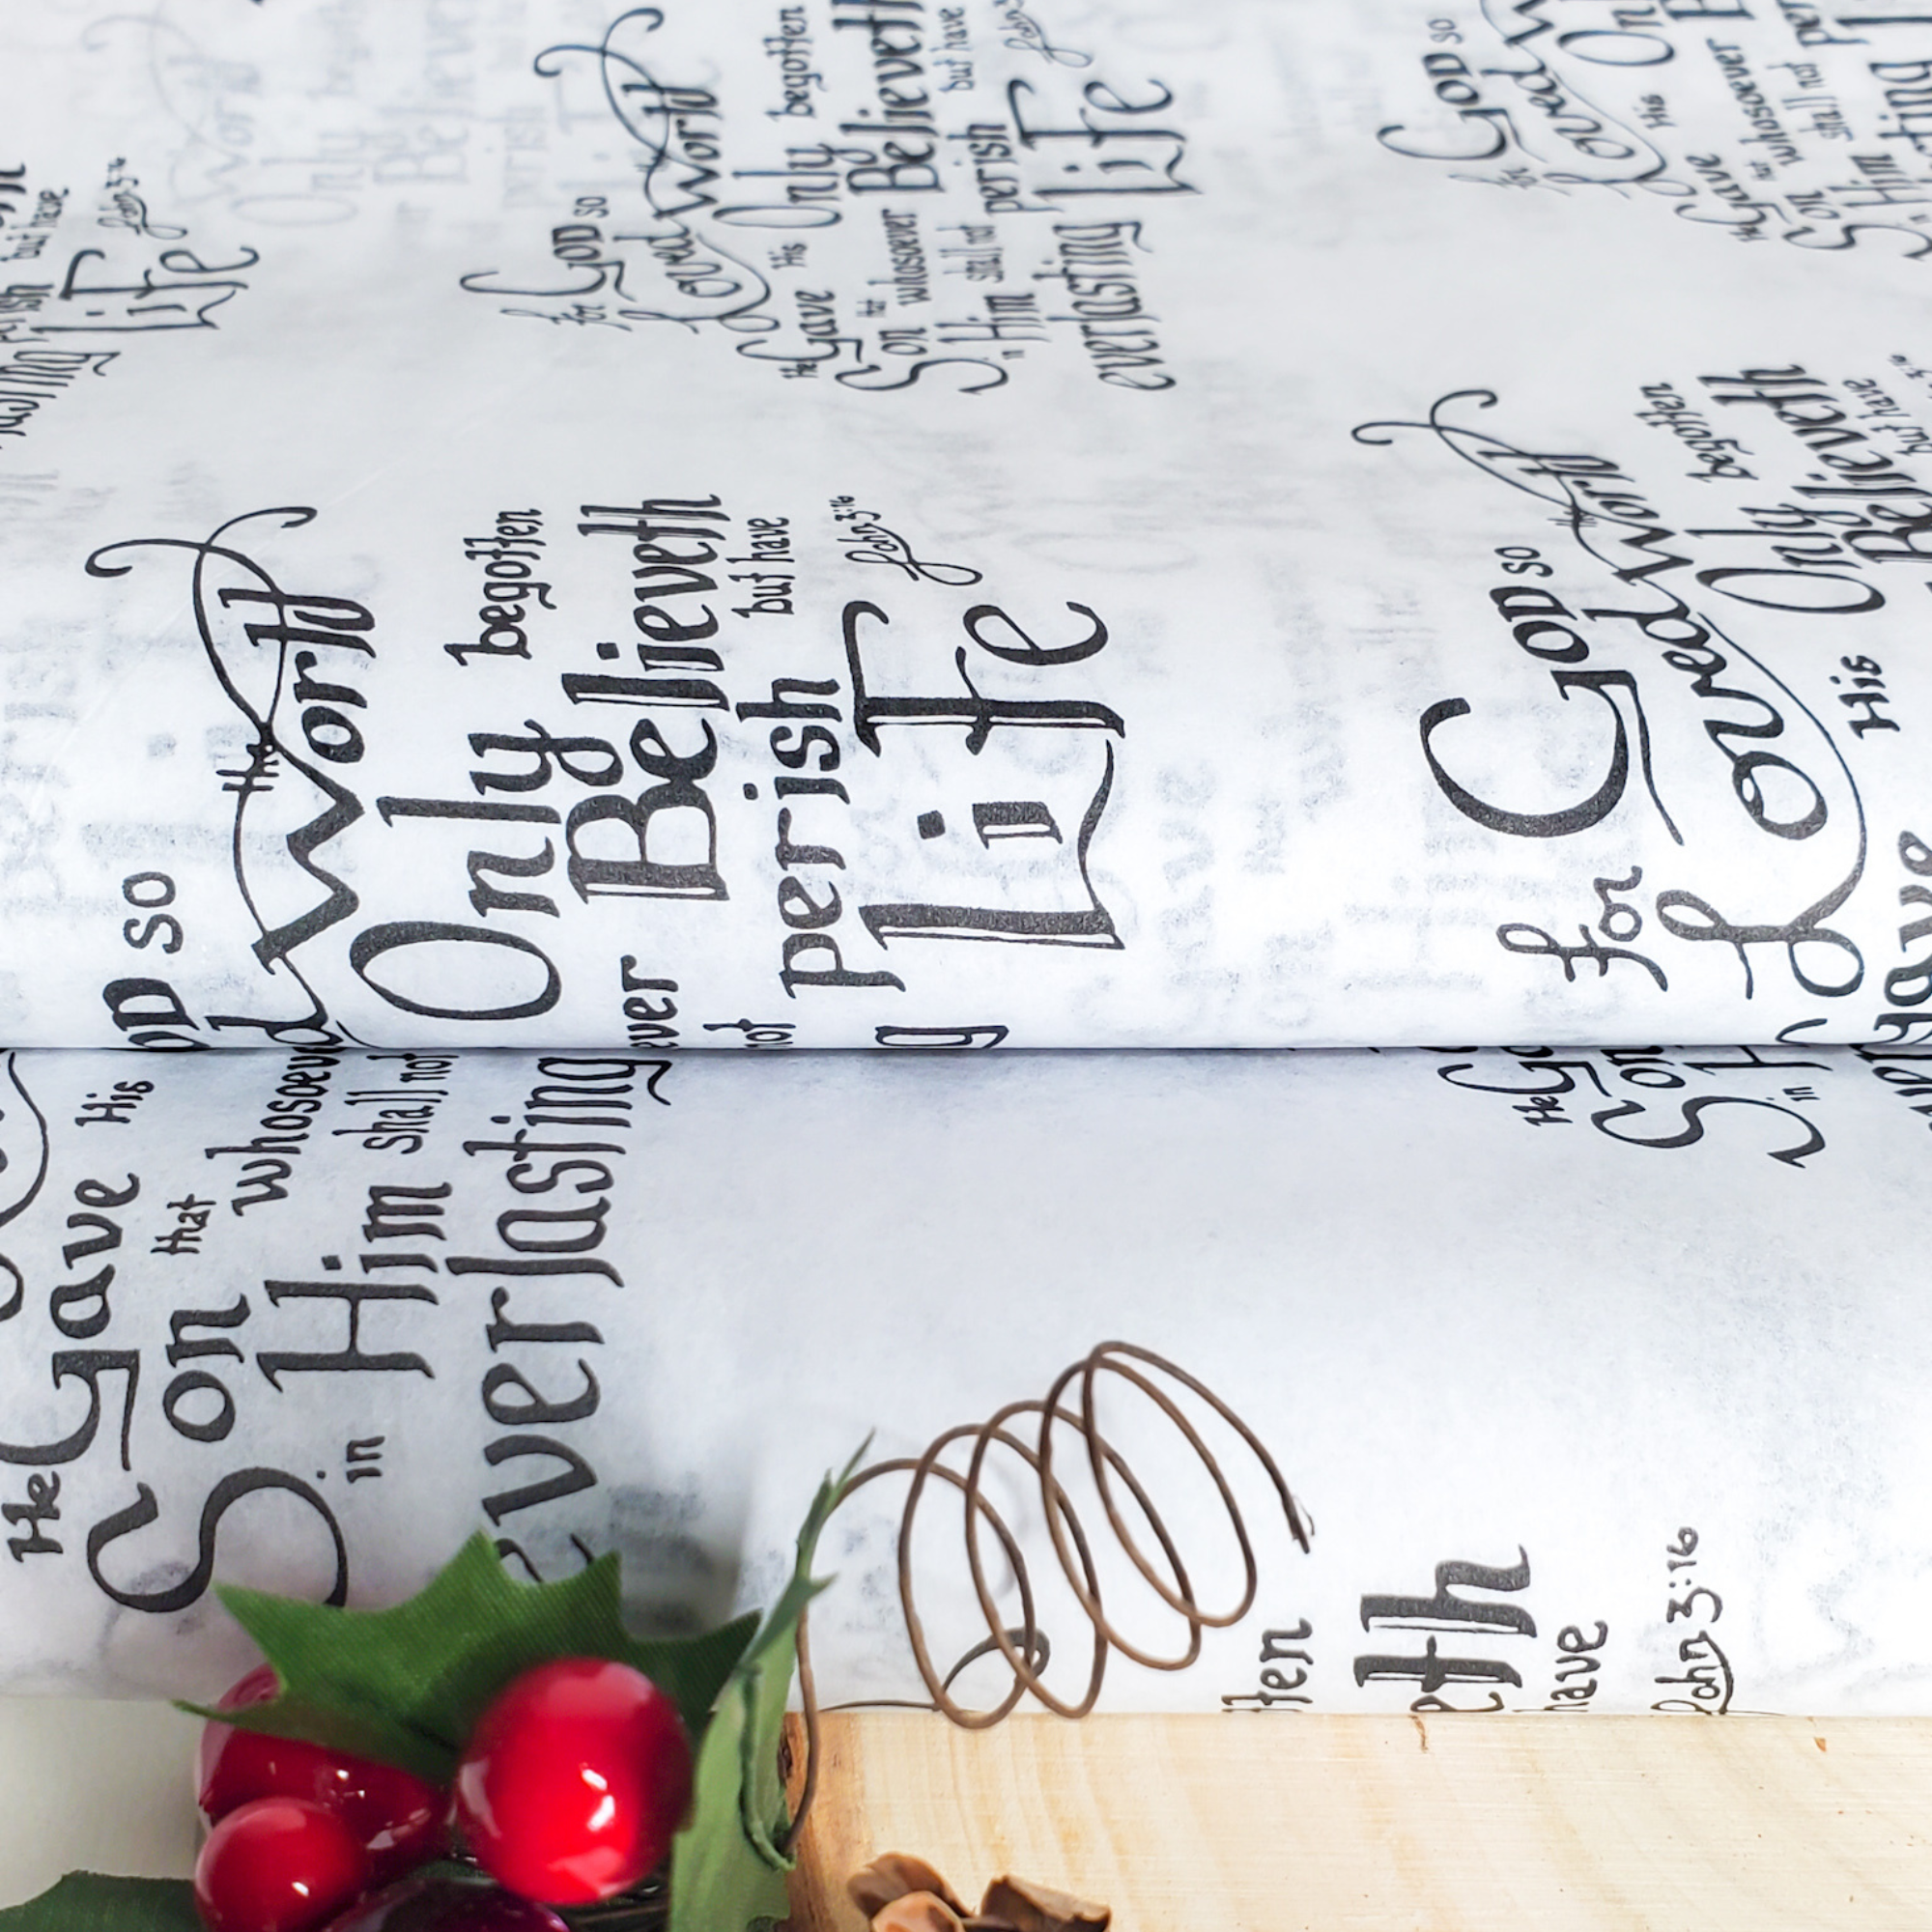 but have
Life
John 3:16
for God so
Loved the World
He Gave His Only begotten
Son that whosoever Believeth
in Him shall not perish but have
everlasting Life
John 3:16
for God so
Loved
He Gave His
Son that whosoever
in Him shall not
so
the World
Only begotten
Believeth
perish but have
Life
John 3:16
He Gave His
Son that whosoever
in Him shall not
everlasting
for God so
Loved the World
Gave His Only begotten
Believeth
but have
He
Son
in
have
John 3:16